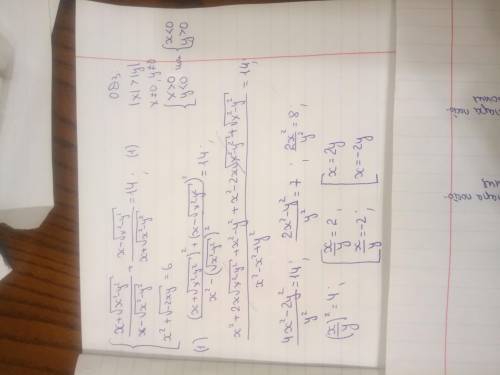 { (x+√(x²-y²))/(x-√(x²-y²)) + (x-√(x²-y²))/(x+√(x²-y²)) = 14; (1)
x²+√(-2xy) = 6
ОДЗ:
|x| > |y|
x≠0, y≠0
{ x>0 y<0 или { x<0 y>0
(1) ((x+√(x²-y²))²+(x-√(x²-y²))²)/(x²-(√(x²-y²))²) = 14;
(x²+2x√(x²-y²)+x²-y²+x²-2x√(x²-y²)+√(x²-y²))/(x²-x²+y²) = 14;
(4x²-2y²)/y² = 14; (2x²-y²)/y² = 7; 2x²/y² = 8;
(x/y)² = 4; [ x/y = 2, x/y = -2; [ x = 2y x = -2y